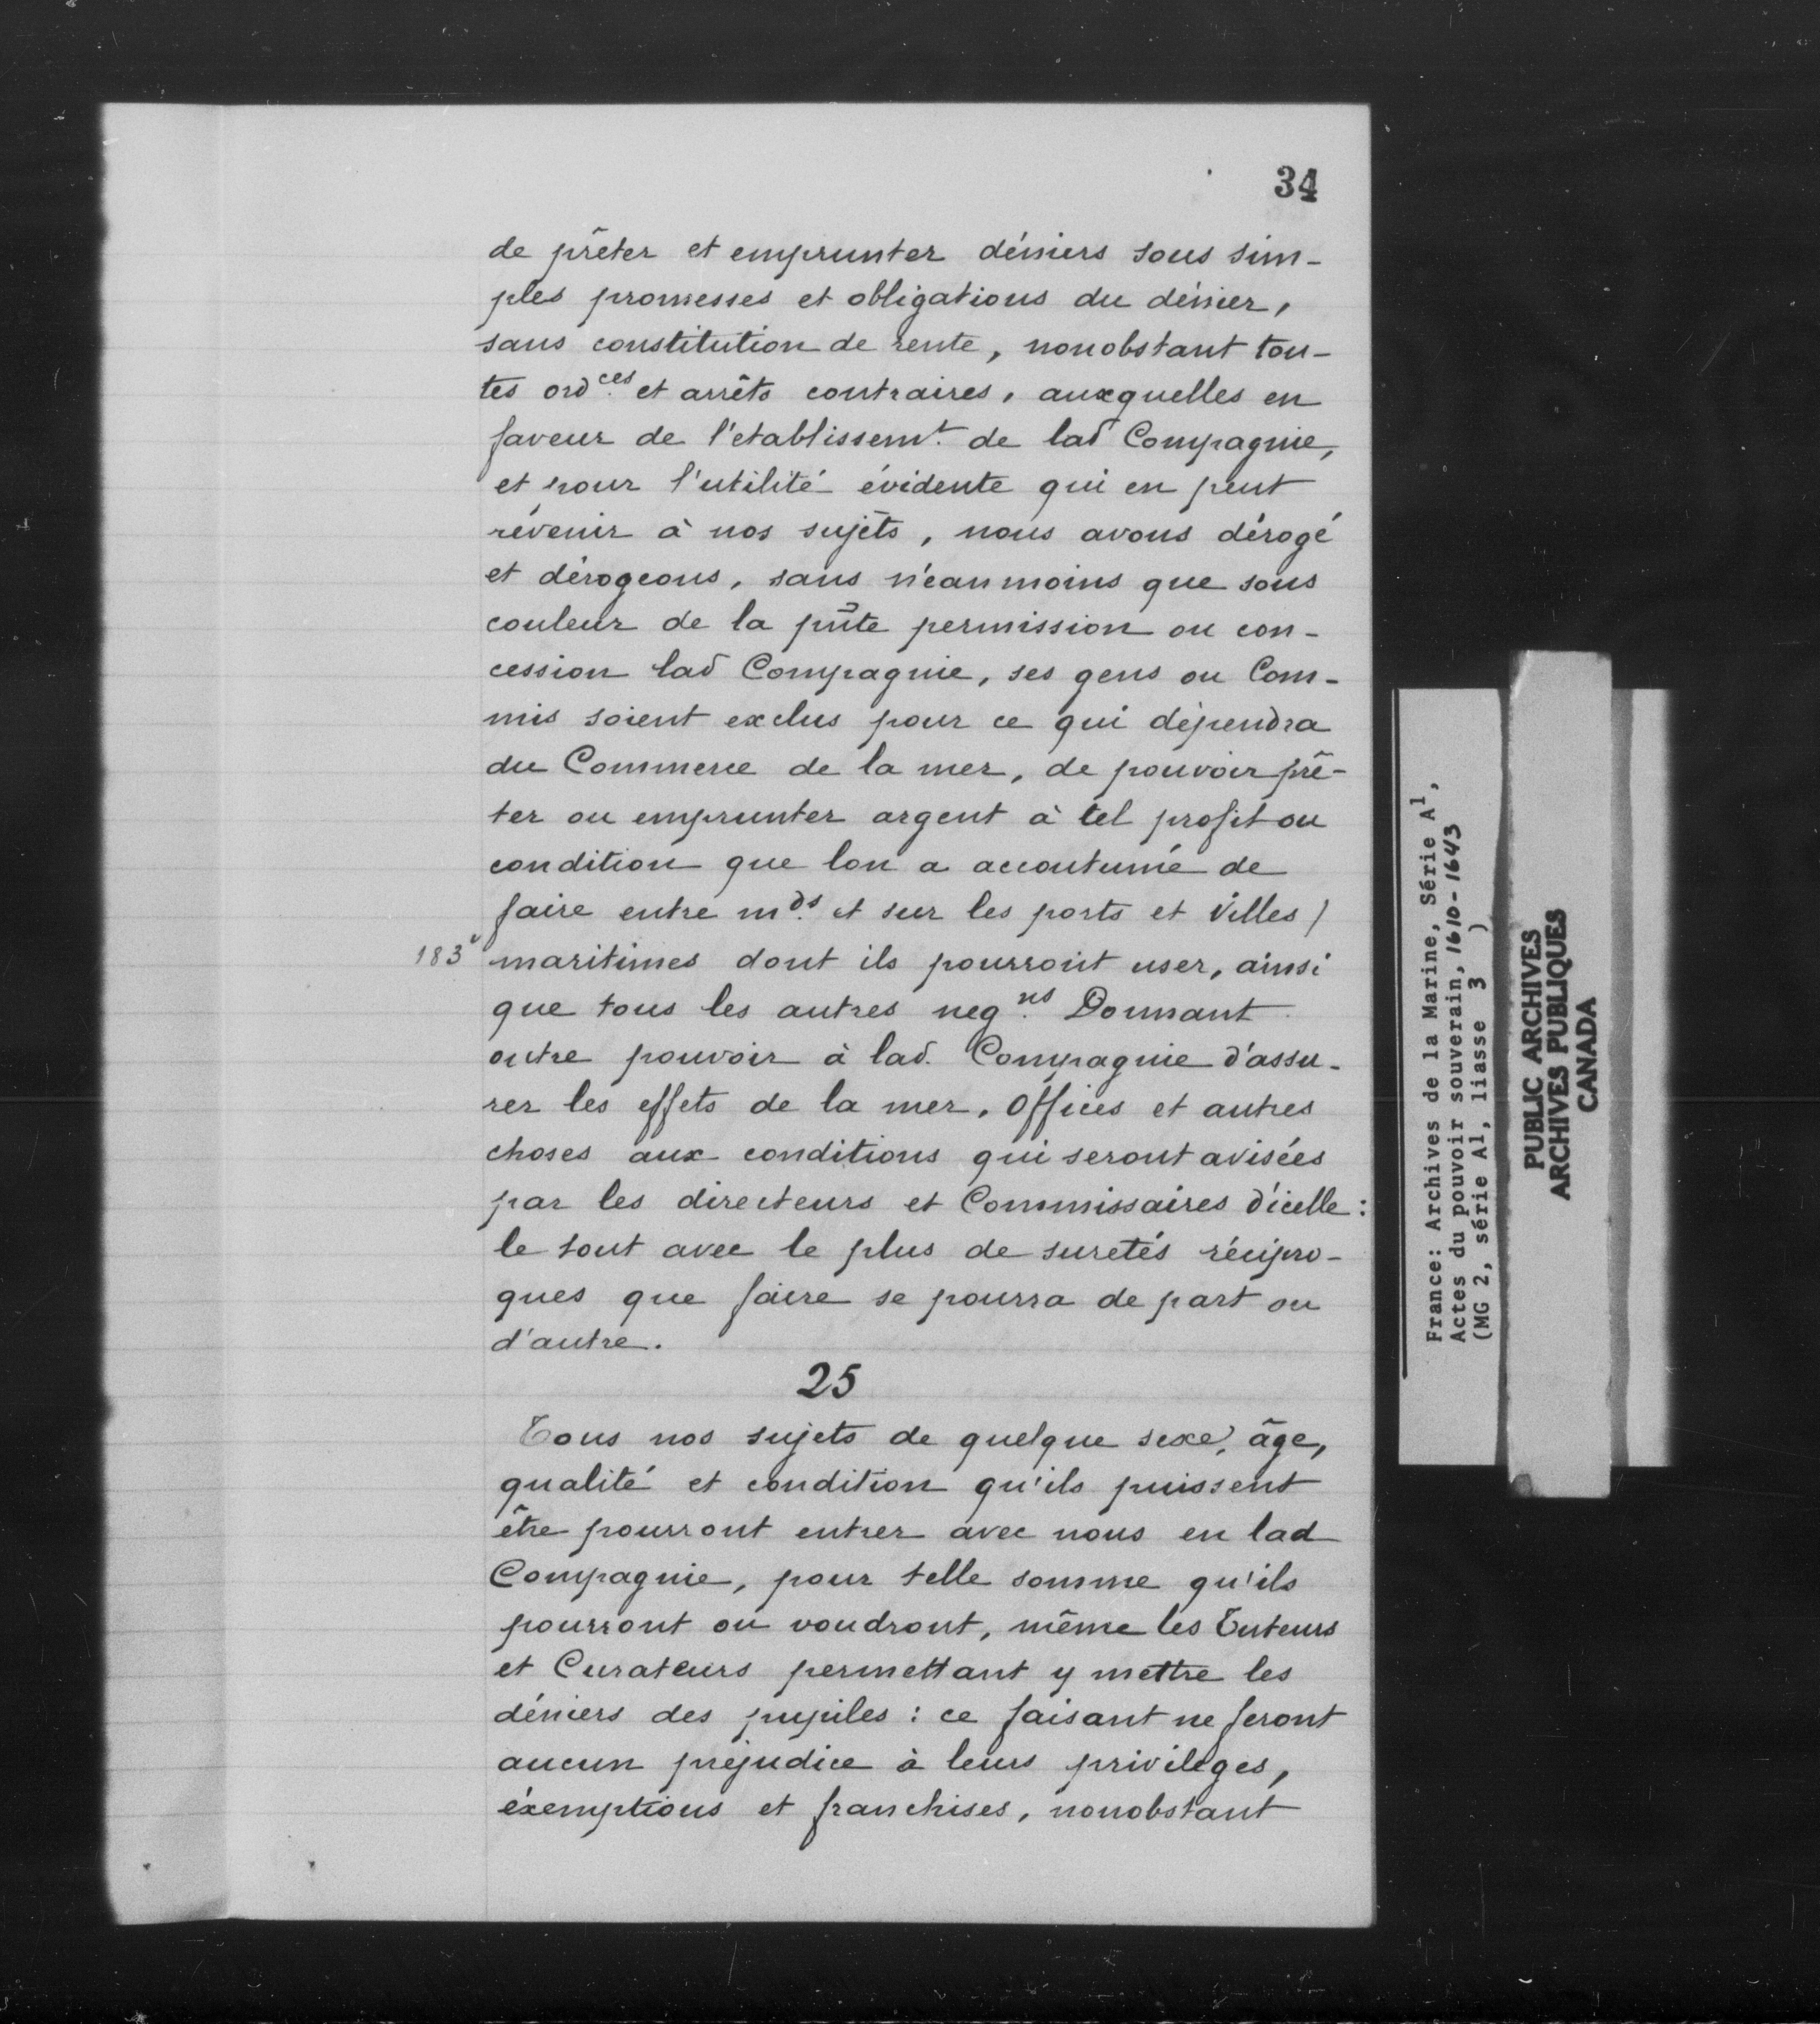 34
de prêter et emprunter déniers sous sim-
ples promesses et obligations du dénier,
sans constitution de rente, nonobstant tou-
tes ord.ces et arrêts contraires, auxquelles en
faveur de l'etablissem.t de lad Compagnie,
et pour l'utilité évidente qui en peut
révenir à nos sujéts, nous avons dérogé
et dérogeons, sans néanmoins que sous
couleur de la pñte permission ou con-
cession lad Compagnie, ses gens ou Com-
mis soient exclus pour ce qui dépendra
du Commerce de la mer, de pouvoir prê-
ter ou emprunter argent à tel profit ou
condition que lon a accoutumé de
faire entre m.ds et sur les ports et Villes /
183 maritimes dont ils pourront user, ainsi
que tous les autres neg.ns Donnant
outre pouvoir à lad. Compagnie d'assu-
rer les effets de la mer, Offices et autres
choses aux conditions qui seront avisées
par les directeurs et Commissaires d'icelle:
le tout avec le plus de suretés récipro-
ques que faire se pourra de part ou
d'autre.
25
Tous nos sujets de quelque sexe, âge,
qualité et condition qu'ils puissent
être pourront entrer avec nous en lad
Compagnie, pour telle somme qu'ils
pourront ou voudront, même les Tuteurs
et Curateurs permettant y mettre les
déniers des pupiles: ce faisant ne feront
aucun préjudice à leurs privileges,
éxemptions et franchises, nonobstant
France: Archives de la Marine, Série A1,
Actes du pouvoir souverain, 1610-1643
(MG 2, série A1, liasse 3 )
PUBLIC ARCHIVES
ARCHIVES PUBLIQUES
CANADA